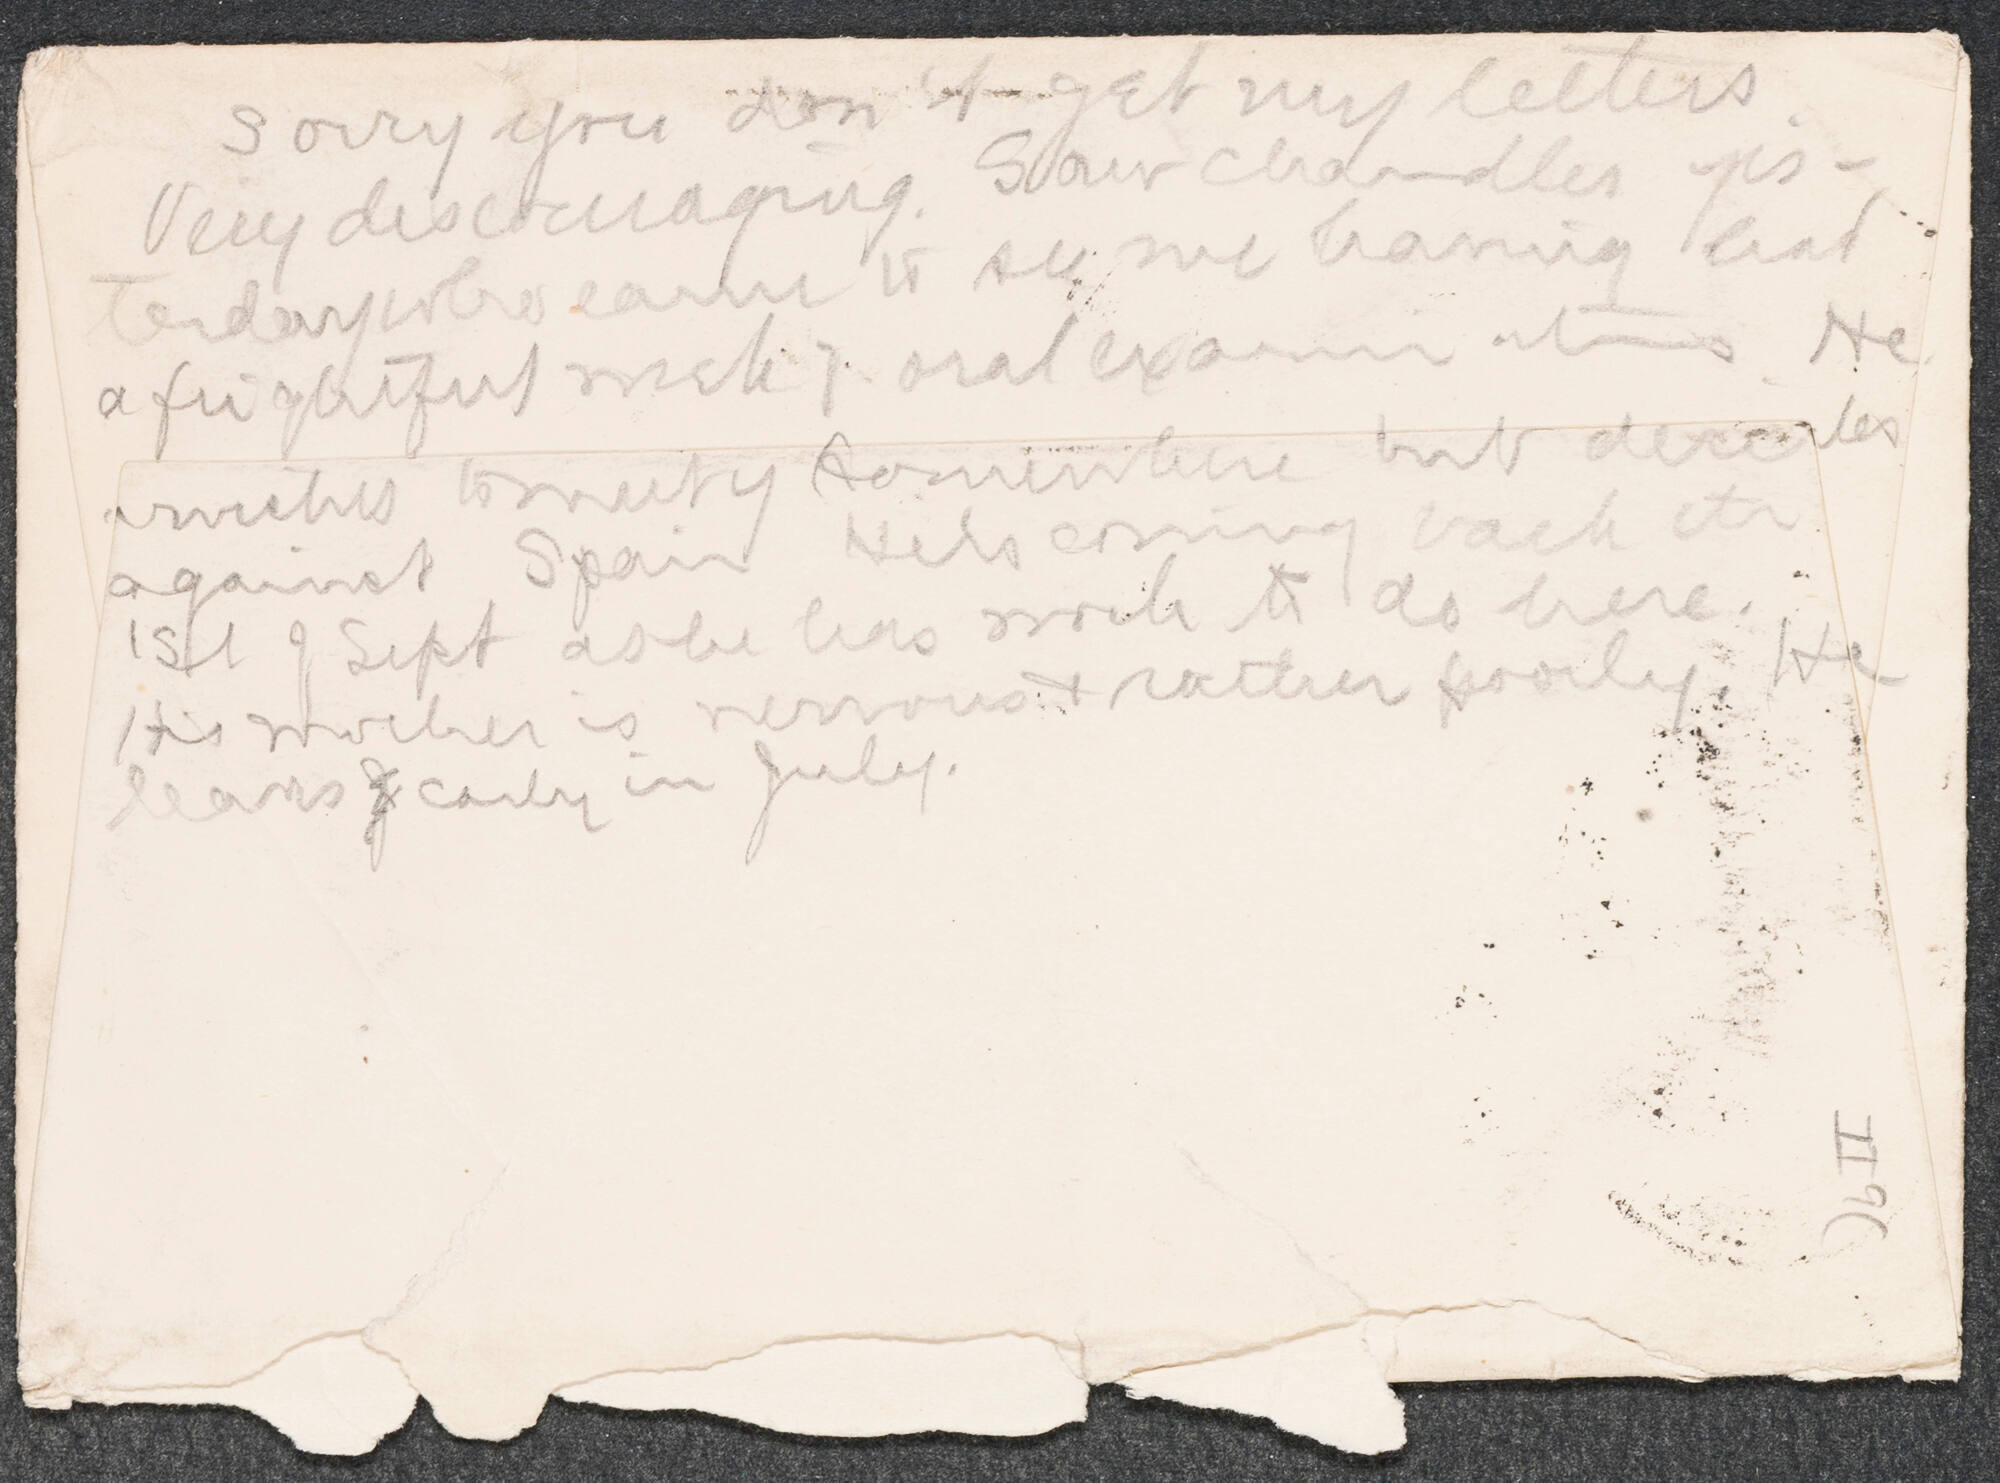 Sorry you don't get my letters.
Very discouraging. Saw Chandler yes-
terday who came to see me having had
a frightful week of oral examinations. He
wishes to meet y somewhere but decides
against Spain He is coming back the
1st of Sept as he has work to do here.
His mother is nervous & rather poorly. He
leaves early in July.
II 9(